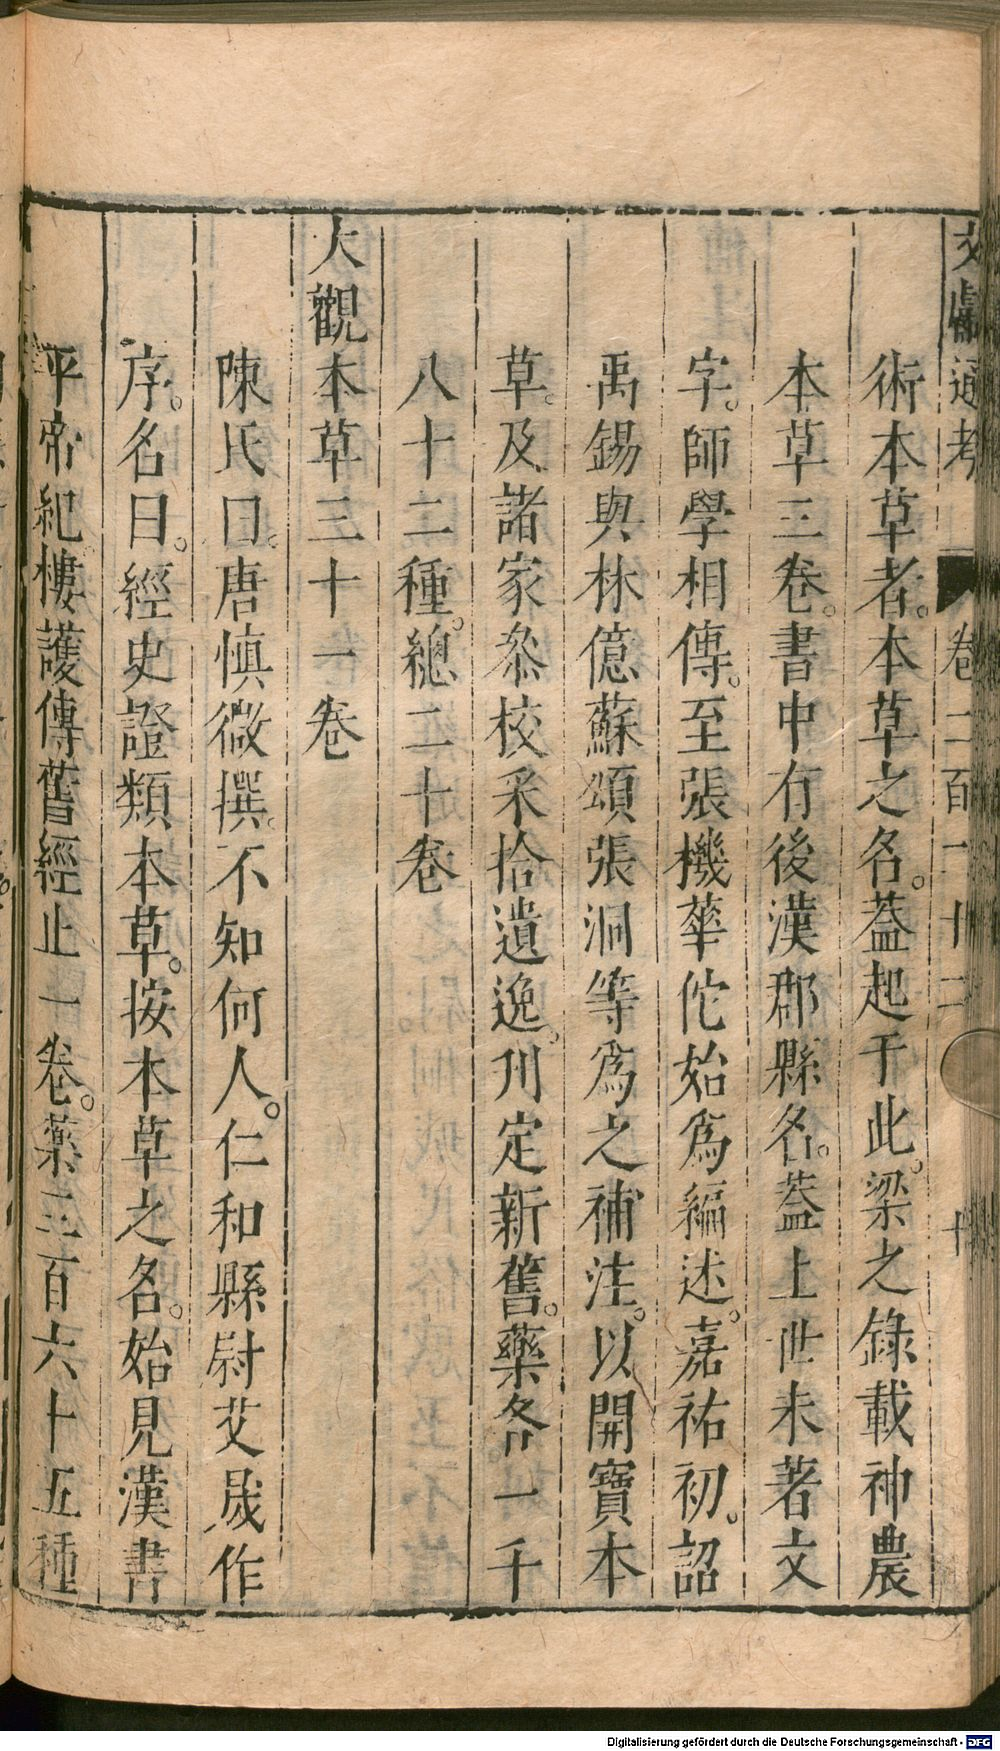 文獻通考 卷二百二十二 十
術本草者。本草之名。葢起于此。梁之錄載神農
本草三卷。書中有後漢郡縣名。葢上世未著文
字。師學相傳。至張機華佗始爲編述。嘉祐初。詔
禹錫與林億蘇頌張洞等爲之補注。以開寶本
草。及諸家叅校采拾遺逸。刋定新舊。藥各一千
八十二種。總二十卷
大觀本草三十一卷
陳氏曰。唐慎微撰。不知何人。仁和縣尉艾晟作
序。名曰。經史證類本草。按本草之名。始見漢書
平帝紀樓護傳舊經止一卷。藥三百六十五種
Digitalisierung gefördert durch die Deutsche Forschungsgemeinschaft - DFG